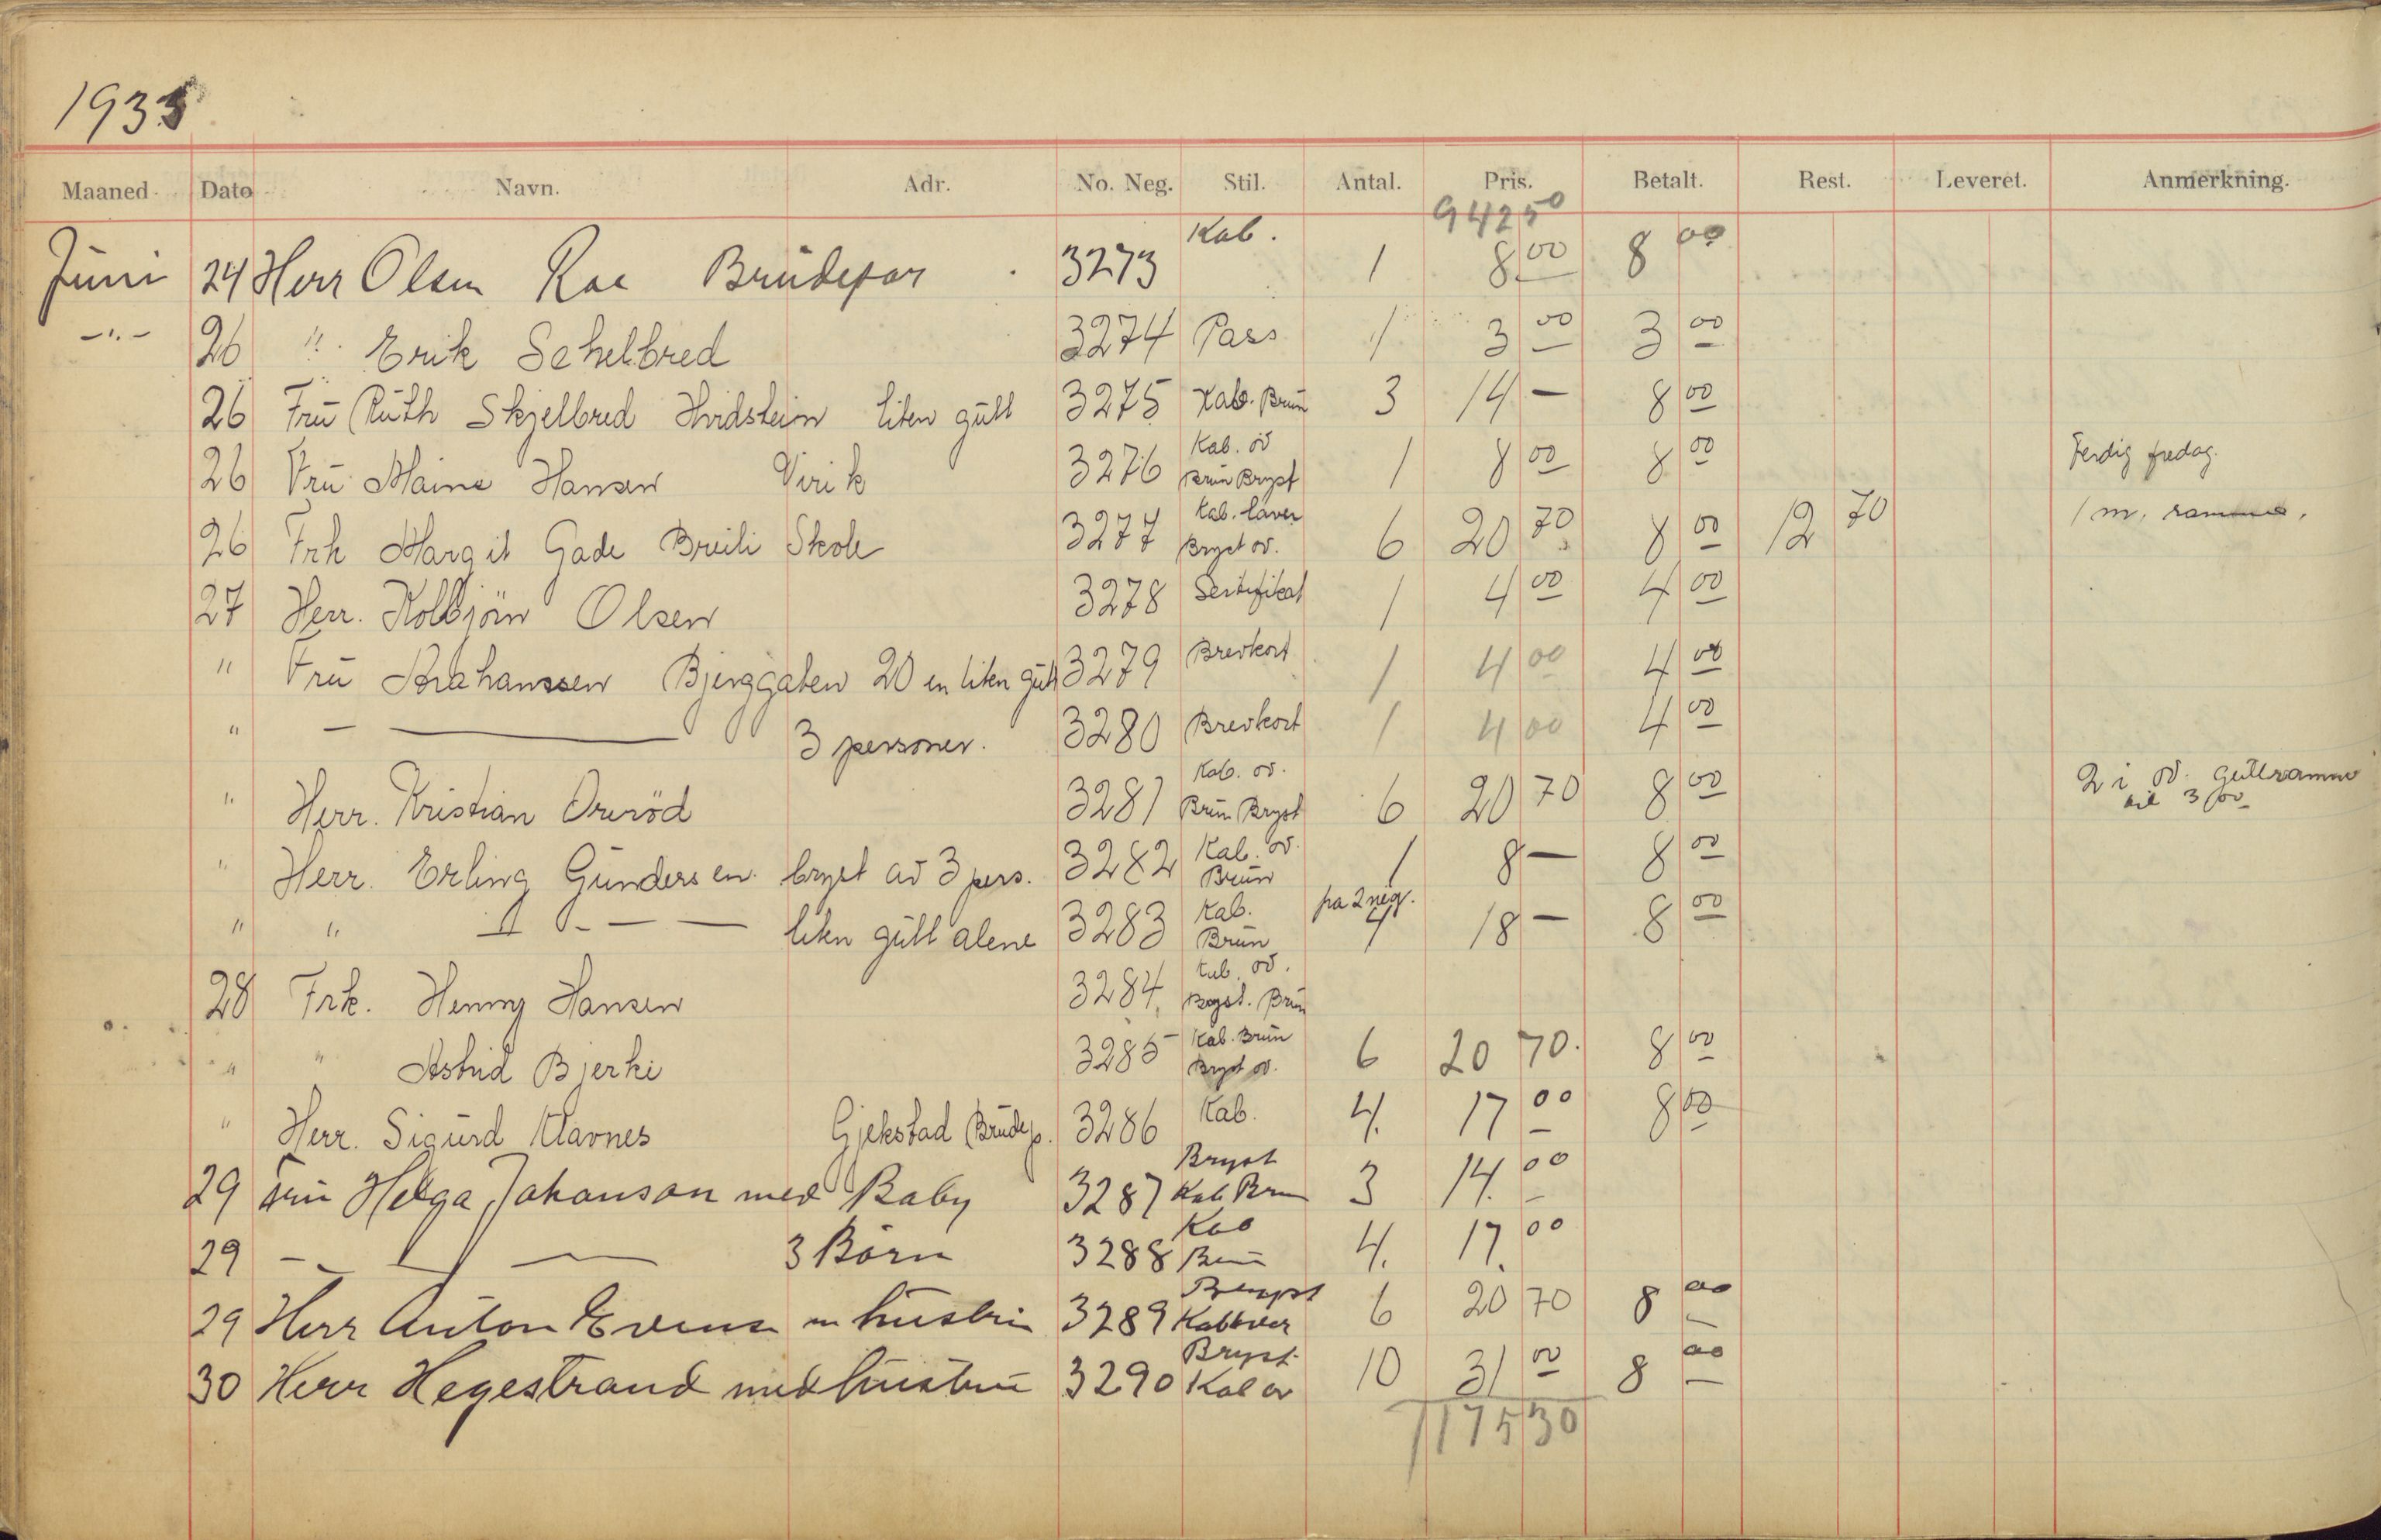 1933
Maaned Dato Navn. Adr. No. Neg. Stil. Antal. Pris. Betalt. Rest. Leveret. Anmerkning.
942 50
Juni 24 Herr Olsen Roa Brüdepar 3273 Kab. 1 8 00 8 00
-"- 26 " Erik Schelbred 3274 Pass 1 3 00 3 00
26 Frü Rüth Skjelbred Hvidstein liten gütt 3275 Kab. Brün 3 14 — 8 00
26 Frü Maine Hansen Virik 3276 Kab. ov Brün Bryst 1 8 00 8 00 Ferdig fredag.
26 Frk Margit Gade Breili Skole 3277 Kab. laver Bryst ov. 6 20 70 8 00 12 70 1 m. ramme.
27 Herr. Kolbjörn Olsen 3278 Sertifikat 1 4 00 4 00
" Frü Abrahamsen Bjerggaten 20 en liten gütt 3279 Brevkort 1 4 00 4 00
" — — 3 personer. 3280 Brevkort 1 4 00 4 00
" Herr. Kristian Overöd 3281 Kab. ov. Brün Bryst 6 20 70 8 00 2 i ov. güllramme til 3 00
" Herr. Erling Gündersen. bryst av 3 pers. 3282 Kab. ov. Brün 1 8 — 8 00
" " — " — — liten gütt alene 3283 Kab. Brün pa 2 neg. 4 18 — 8 00
28 Frk. Henny Hansen 3284 Kab. ov. Bryst. Brün
" " Astrid Bjerke 3285 Kab. Brün Bryst ov. 6 20 70. 8 00
" Herr. Sigürd Klavnes Gjekstad Brüdep. 3286 Kab. 4. 17 00 8 00
29 Frü Helga Johanson med Baby 3287 Bryst Kab Brun 3 14. 00
29 — " — 3 Börn 3288 Kab Brün 4. 17. 00
29 Herr Anton Evensen m hüstrü 3289 Bryst Kab 6 20 70 8 00
30 Herr Hegestrand med hüstrü 3290 Bryst Kab ov 10 31 00 8 00
1175 30